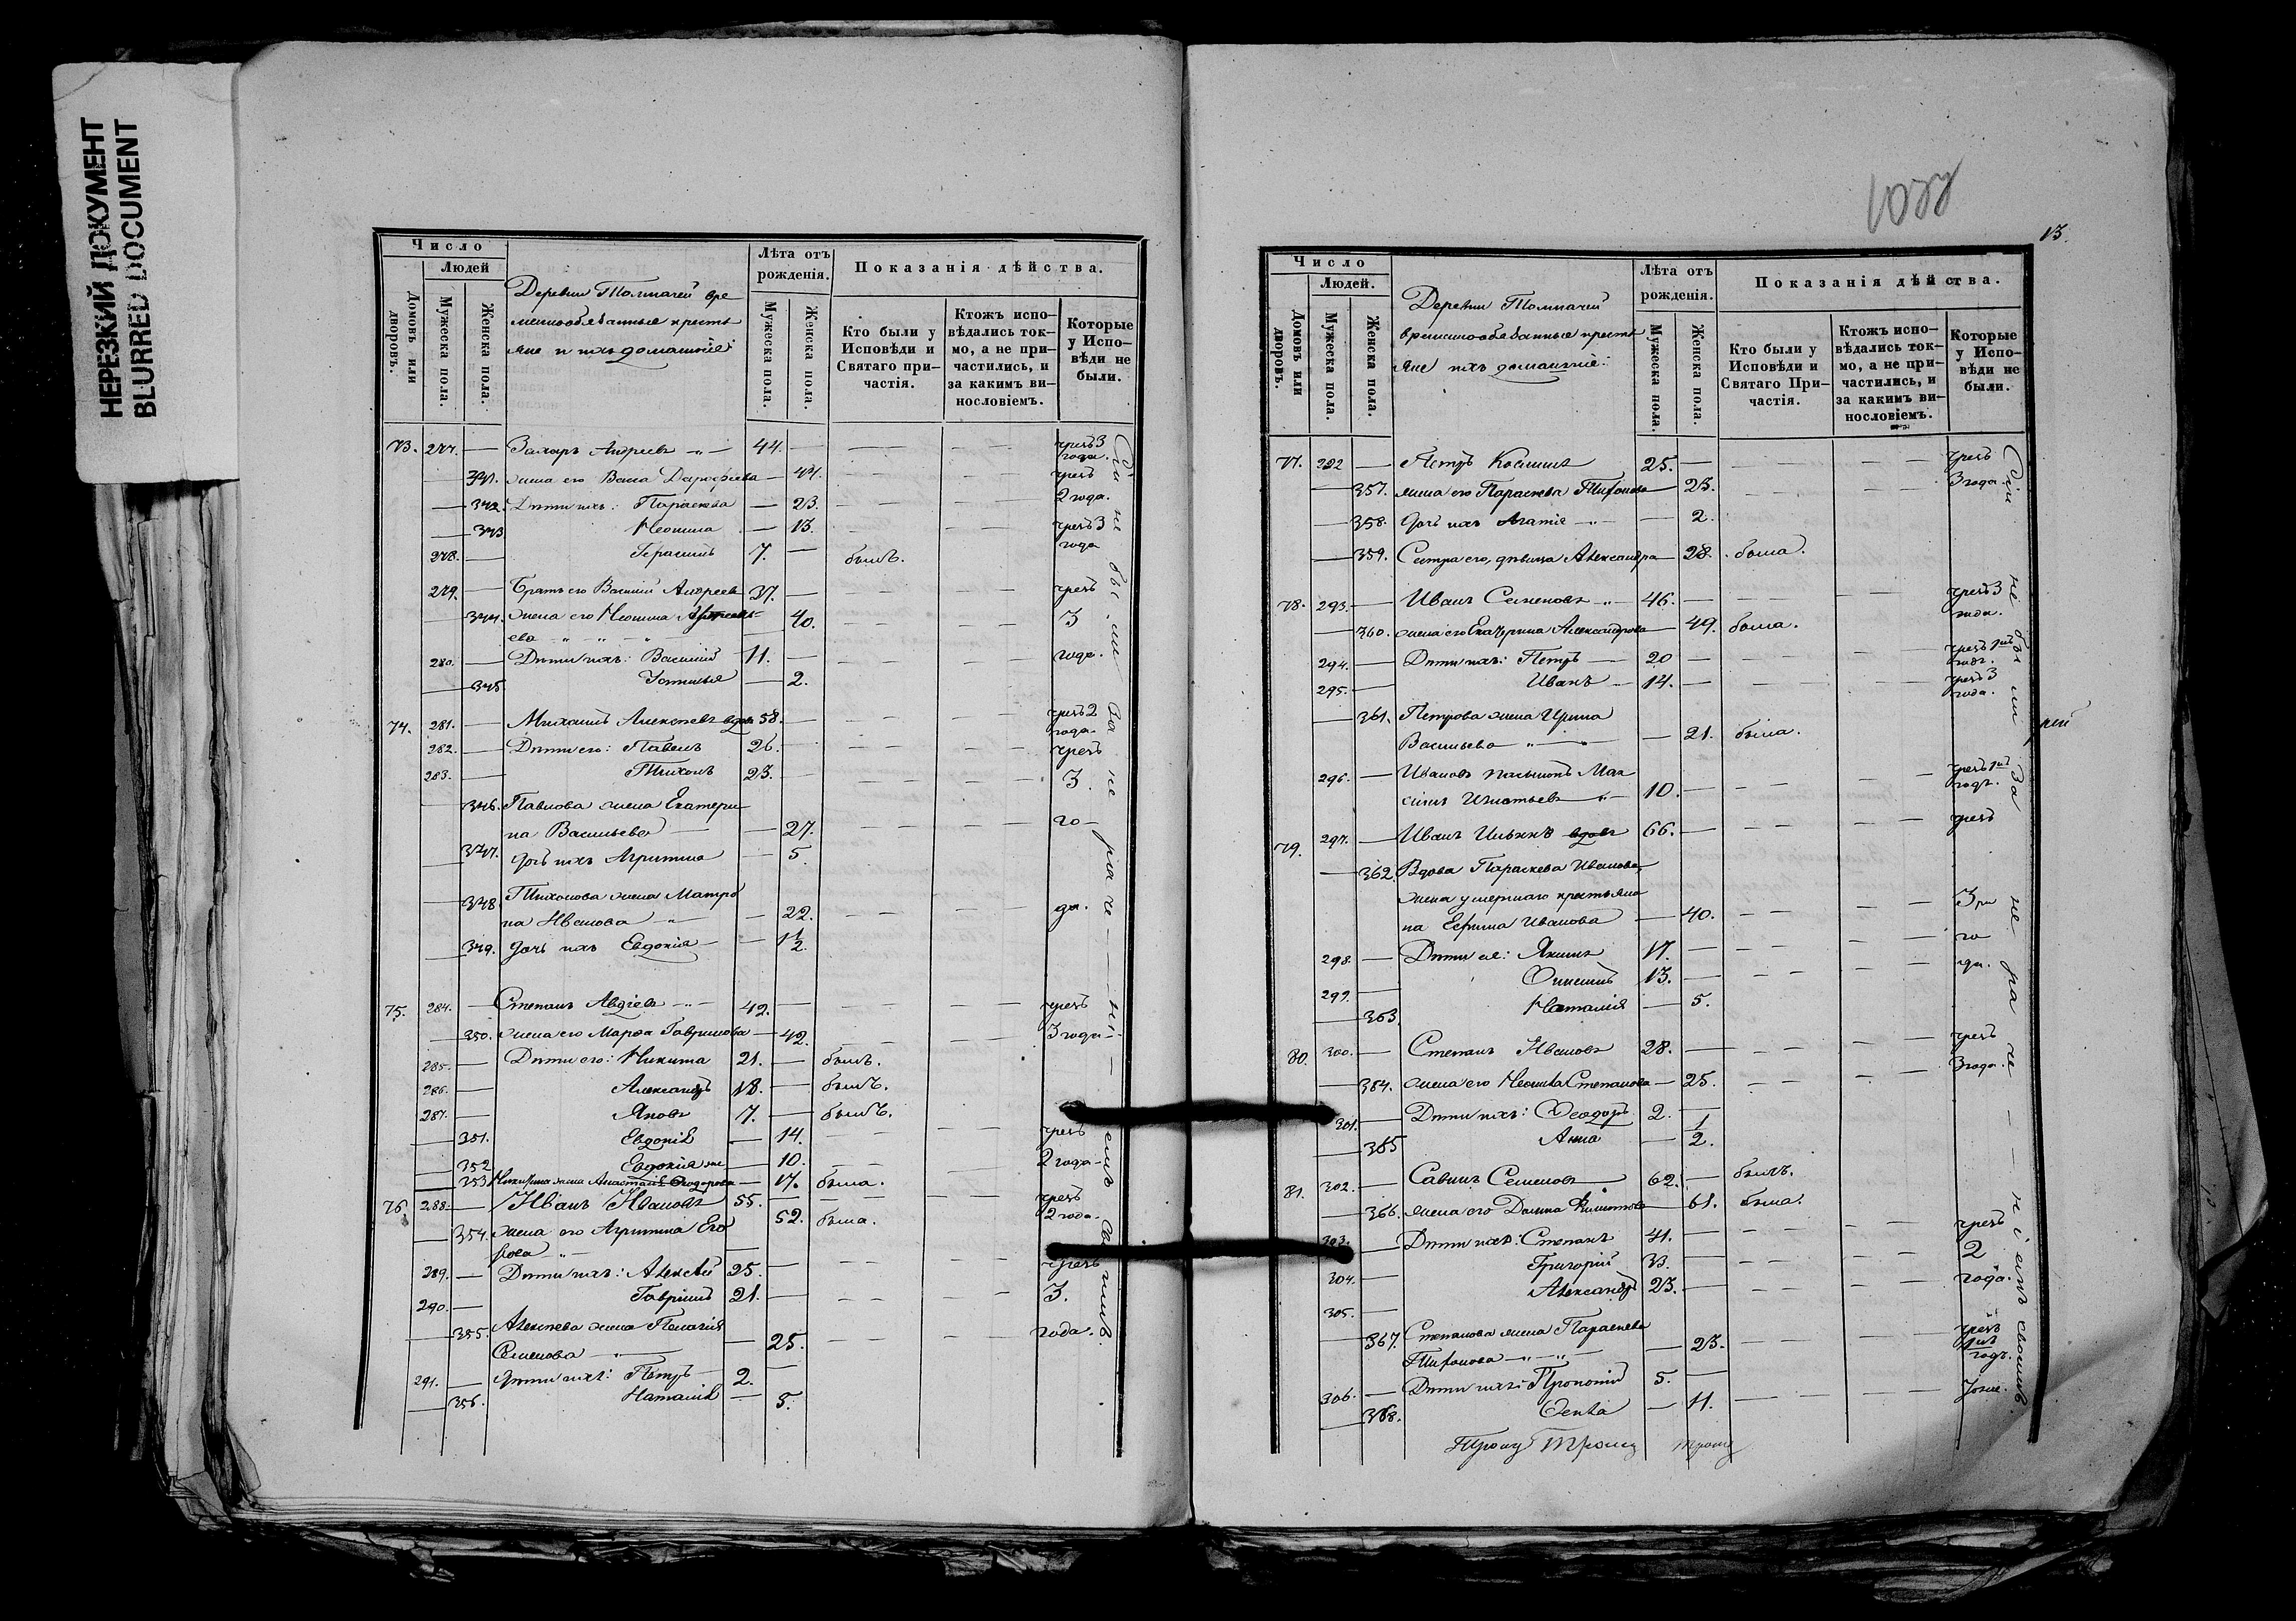 НЕРЕЗКИЙ ДОКУМЕНТ
BLURRED DOCUMENT
Число
Людей
Домовъ или дворовъ.
Мужеска пола.
Женска пола.
Деревни Толмачей вре
меннообязанные кресть
яне и ихъ домашніе:
Лѣта отъ рожденія.
Мужеска пола.
Женска пола.
Показанія дѣйства.
Кто были у Исповѣди и Святаго при-частія.
Ктожъ испо-вѣдались ток-мо, а не при-частились, и за какимъ ви-нословіемъ.
Которые у Испо-вѣди не были.
73. 277. — Захаръ Андреевъ 44. — чрезъ 3 года.
341. жена его Васса — 47. чрезъ
342. Дѣти ихъ: Параскева — 23. 2 года.
343 Неонила — 13. чрезъ 3 года
278. — Герасимъ 7. — былъ.
279. — Братъ его Василій Андреевъ 37. — чрезъ
344. жена его Неонила
ева — 40. 3
280. — Дѣти ихъ: Василій 11. — года.
345 Устинья — 2.
74. 281. — Михаилъ Алексѣевъ вдовъ 58. — чрезъ 2 года.
282. — Дѣти его: Павелъ 26. — чрезъ
283. — Тихонъ 23. — 3.
346. Павлова жена Екатери
на Васильева — 27. го-
347. дочь ихъ Агрипина — 5.
348. Тихонова жена Матро
на Иванова — 22. да.
349. дочь ихъ Евдокія — 1/2
75. 284. — Степанъ Авдіевъ 42. — чрезъ
350. жена его Марѳа Гаврилова — 42. 3 года
285. — Дѣти его: Никита 21. — былъ.
286. — Александръ 18. — былъ.
287. — Яковъ 7. — былъ.
351. Евдокія — 14. чрезъ
352 Евдокія же — 10. 2 года
353 Никитина жена Анастасія Ѳеодорова — 17. была.
76. 288. — Иванъ Ивановъ 55. — чрезъ 2 года.
354. жена его Агрипина Его
рова — 52. была.
289. — Дѣти ихъ: Алексѣй 25. — чрезъ
290. — Гавріилъ 21. — 3.
355. Алексѣева жена Пелагія
Семенова — 25. года.
291. — Дѣти ихъ: Петръ 2. —
356. Наталія — 5.
Сіи не были за не раче-ніемъ своимъ.
13.
Число
Людей.
Домовъ или дворовъ.
Мужеска пола.
Женска пола.
Деревни Толмачей
временнообязанные кресть
яне ихъ домашніе:
Лѣта отъ рожденія.
Мужеска пола.
Женска пола.
Показанія дѣйства.
Кто были у Исповѣди и Святаго При-частія.
Ктожъ испо-вѣдались ток-мо, а не при-частились, и за какимъ ви-нословіемъ.
Которые у Испо-вѣди не были.
77. 292 — Петръ Косминъ 25. — чрезъ
357. жена его Параскева Тихонова — 23. 3 года
358. дочь ихъ Агатія — 2.
359. Сестра его, дѣвица Александра — 28. была.
78. 293. — Иванъ Семеновъ 46. — чрезъ 3 года.
360. жена его Екатерина Александрова — 49. была.
294. — Дѣти ихъ: Петръ 20 — чрезъ 1нъ годъ.
295. — Иванъ 14. — чрезъ 3 года.
361. Петрова жена Ирина
Васильева — 21. была.
296. — Ивановъ пасынокъ Мак
симъ Игнатьевъ 10. — чрезъ 1нъ годъ.
79. 297. — Иванъ Ильинъ вдовъ 66. — чрезъ
362. Вдова Параскева Иванова,
жена умершаго крестьяни
на Ефима Иванова — 40. 3 ри
298. — Дѣти ея: Якимъ 17. — го
299. — Онисимъ 13. — да.
363. Наталия — 5.
80. 300. — Степанъ Ивановъ 28. — чрезъ
384. жена его Неонила Степанова — 25. 3 года.
301. — Дѣти ихъ: Ѳеодоръ 2. —
385 Анна — 1/2.
81. 302. — Савинъ Семеновъ 62. — былъ.
366. жена его Домна Филиппова — 61. была.
303. — Дѣти ихъ: Степанъ 41. — чрезъ
304. — Григорій 33. — 2
305. — Александръ 23. — года.
367. Степанова жена Параскева
Тихонова — 23. чрезъ 1нъ годъ.
306. — Дѣти ихъ: Прокопій 5. —
368. Ѳекла — 11. тоже.
Сіи не были за не раче-ніемъ своимъ